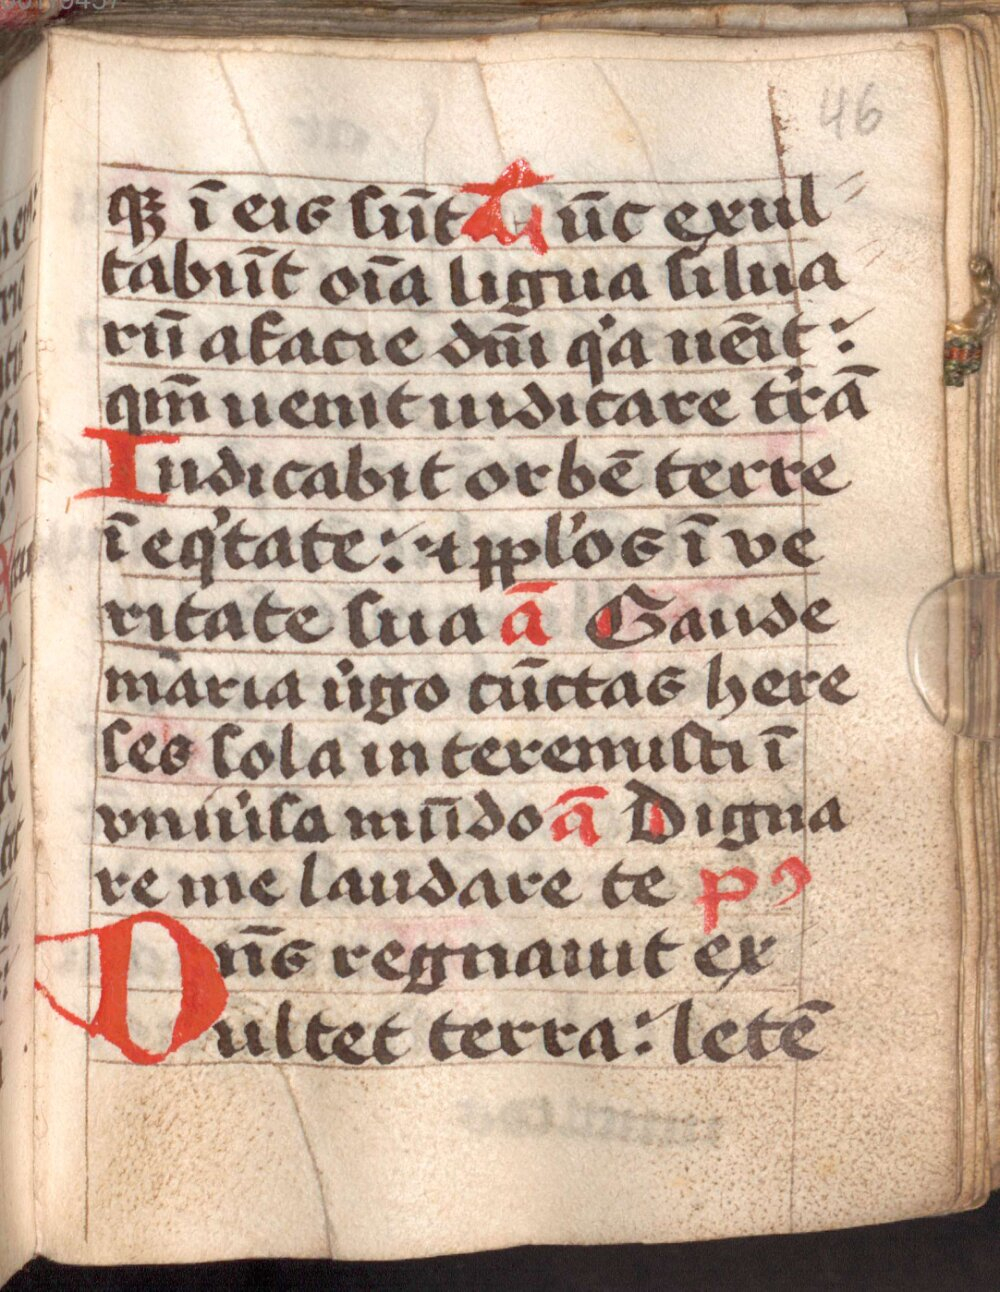 46
qȝ ī eis sūt Tūc exul
tabūt oīa ligna silua
rū a facie dn̄i q̓a uēit :
qm̄ uenit iudicare tr̄ā
Iudicabit orbē terre
ī eq̓tate : ⁊ ppl̓os ī ve
ritate sua ā Gaude
maria u̓igo cūctas here
ses sola interemisti ī
vniu̓iso mūdo ā Digna
re me laudare te pꝰ
Dn̄s regnauit ex
ultet terra : letē